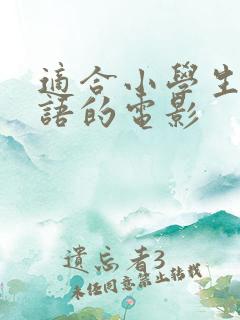 適合小學生
語的電影
遺忘者3
未经同意禁止转载